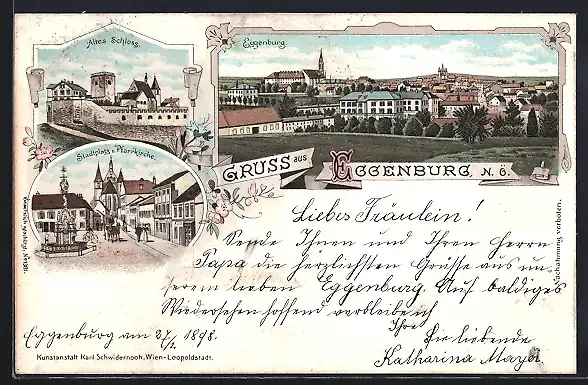 Altes Schloss.
Eggenburg.
Stadtplatz u. Pfarrkirche.
GRUSS aus EGGENBURG, N.Ö.
Liebes Fräulein!
Sende Ihnen und Ihren Herrn
Papa die herzlichsten Grüsse aus un-
serem lieben Eggenburg. Auf baldiges
Wiedersehen hoffend verbleibe ich
Ihre
Sie liebende
Katharina Mayer
Eggenburg am 27/ 1898.
Nachahmung verboten.
Kunstanstalt Karl Schwidernoch, Wien-Leopoldstadt.